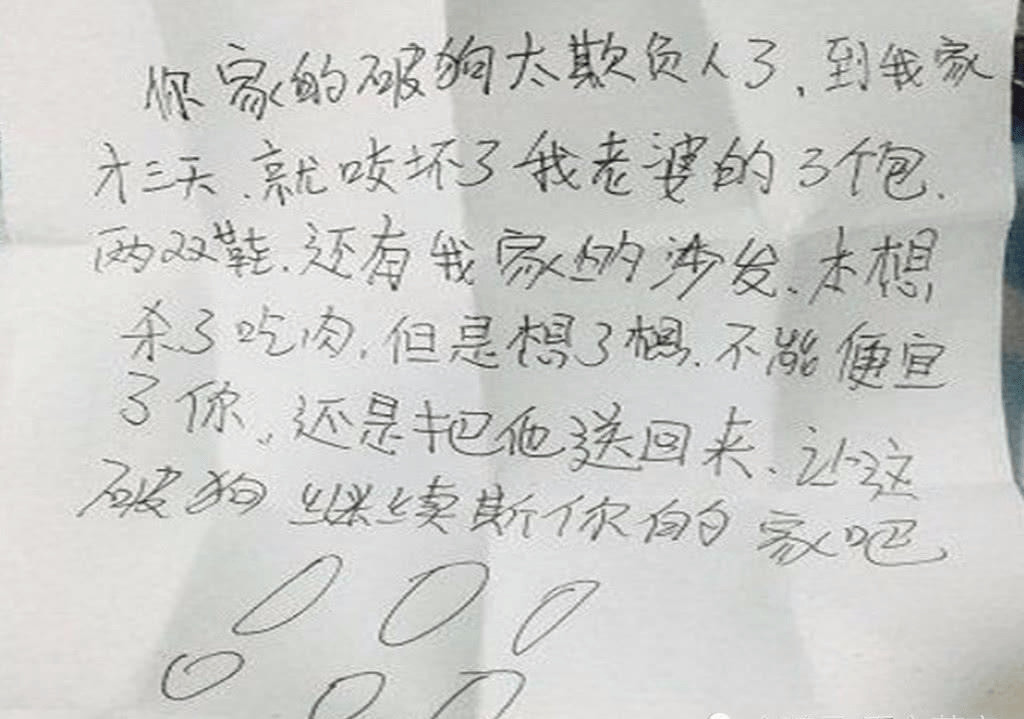 你家的破狗太欺负人了,到我家
才三天、就咬坏了我老婆的3个包、
两双鞋、还有我家的沙发、本想
杀了吃肉,但是想了想、不能便宜
了你、还是把他送回来、让这
破狗继续斯你的家吧